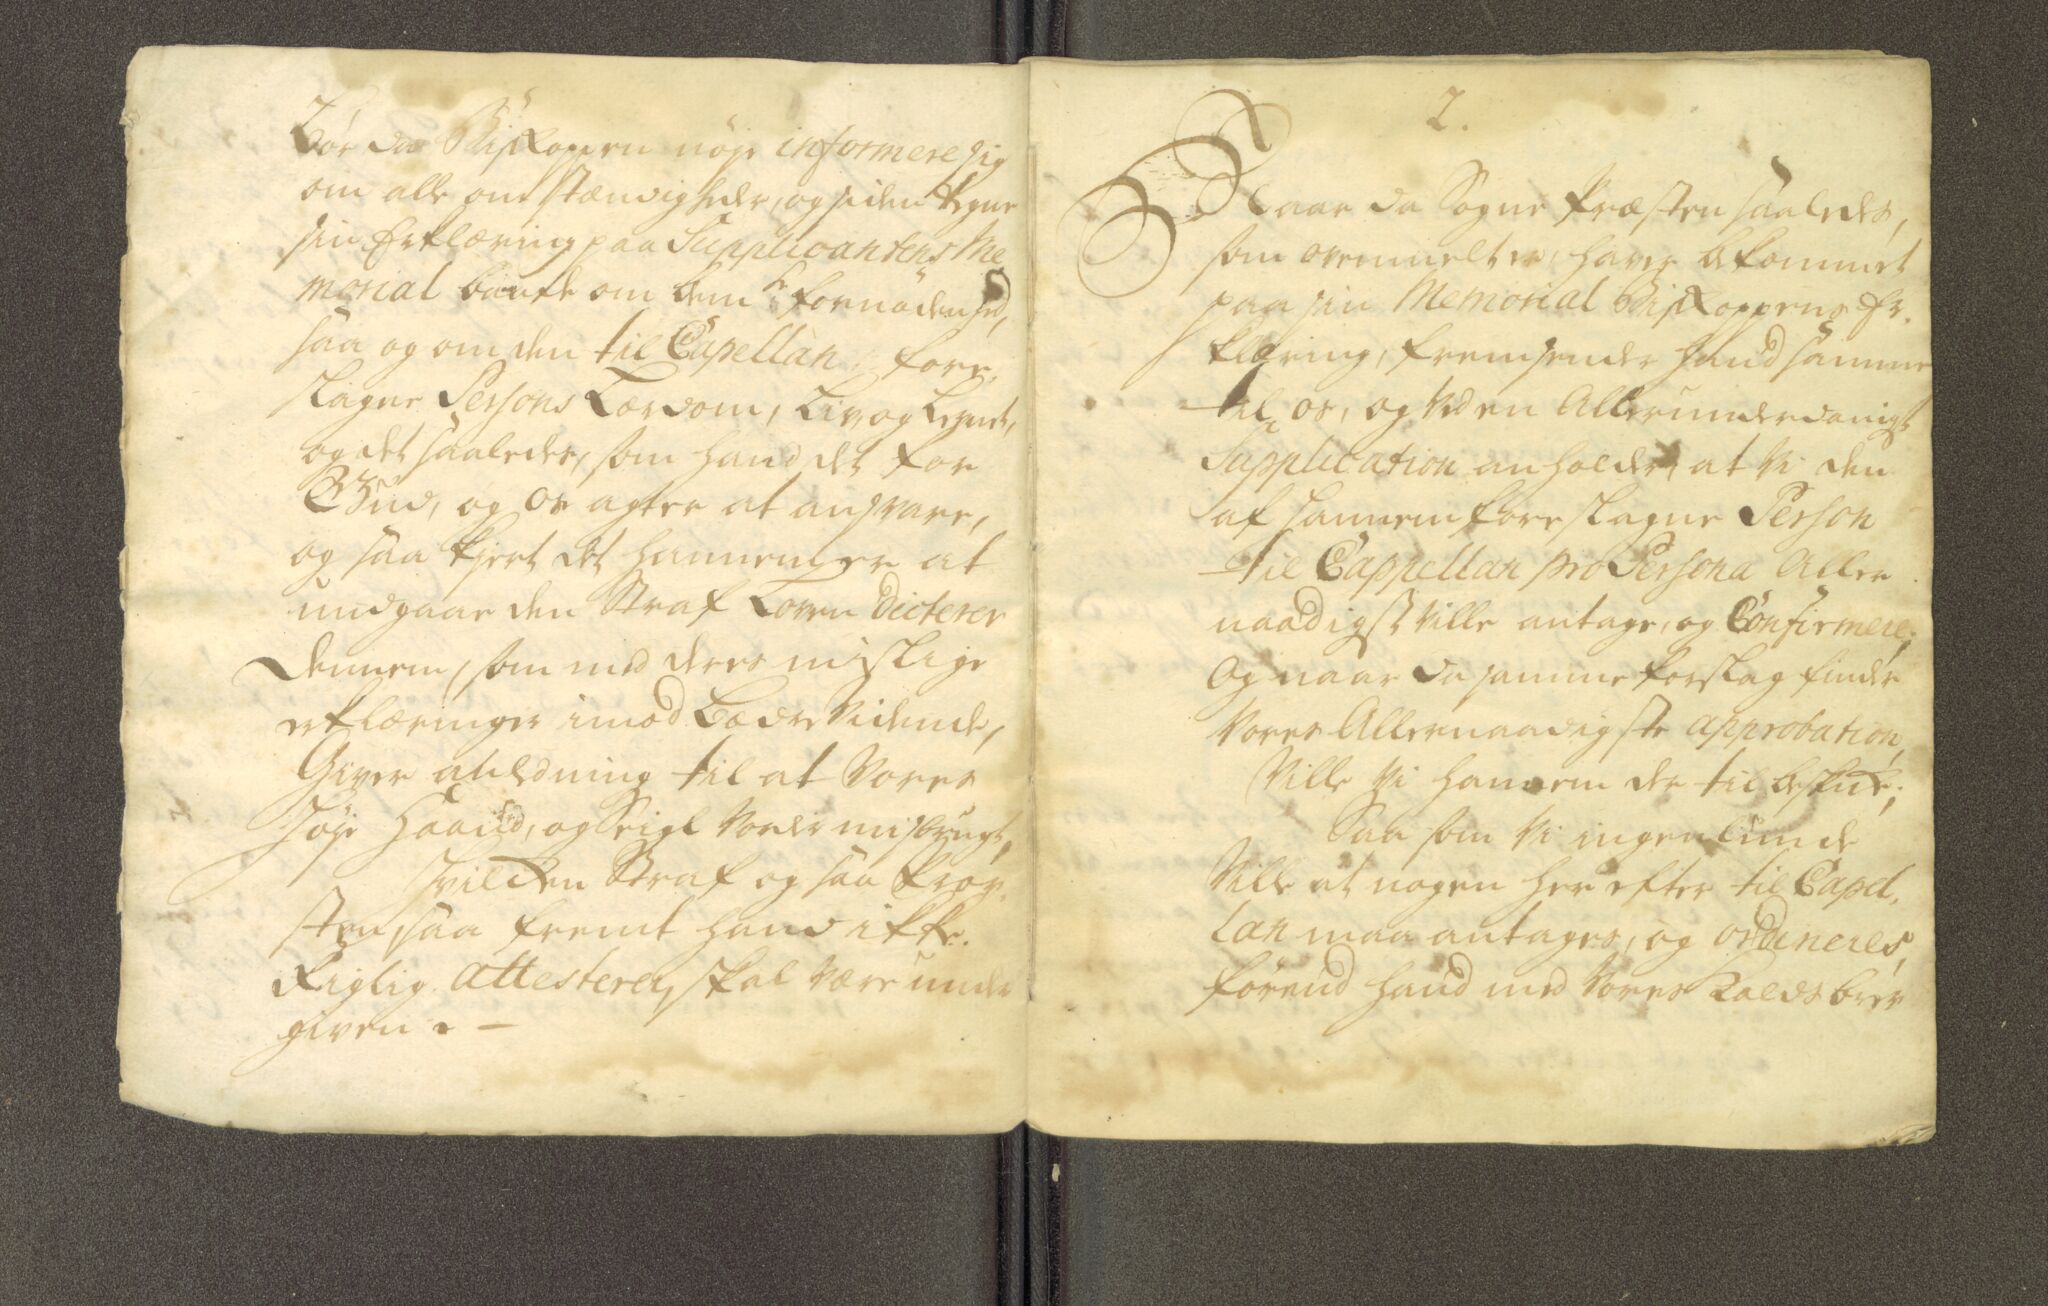 Bör da Biskoppen nöje informere sig
om alle omstændigheder, og siden tegne
sin Erklæring paa Supplicantens Me
morial baade om bem.te fornödenhed,
saa og om den til Capellan, fore,
slagne Persons Lærdom, Liv og Lefnet,
og det saaledes, som hand det for
Gud, og os agter at ansvare,
og saa kjert det hannem er at
undgaae den Straf Loven dicterer
dennem, som med deres mislige
erklæringer imod Bædre Vidende,
Giver anledning til at Vores
höje Haand, og Seigl Vorder misbrugt,
hvilken Straf og saa Prov,
sten, saa fremt hand ikke
Rigtig attesterer, skal være under
given. —
2.
Naar da Sogne Præsten saaledes,
som ovenmelt er, haver bekommet
paa sin Memorial Biskoppens Er,
klæring, fremsender hand samme
til os, og ved en Allerunderdanigst
Supplication anholder, at Vi den
af hannem foreslagne Person
til Cappellan pro Persona Aller
naadigst Ville antage, og Confirmere,
Og naar da samme forslag finder
Vores Allernaadigste approbation,
Ville Vi hannem der til beskikke;
Saa som Vi ingenlunde
Ville at nogen her efter til Capel,
lan maa antages, og ordineres,
förend hand med Vores Kalds brev